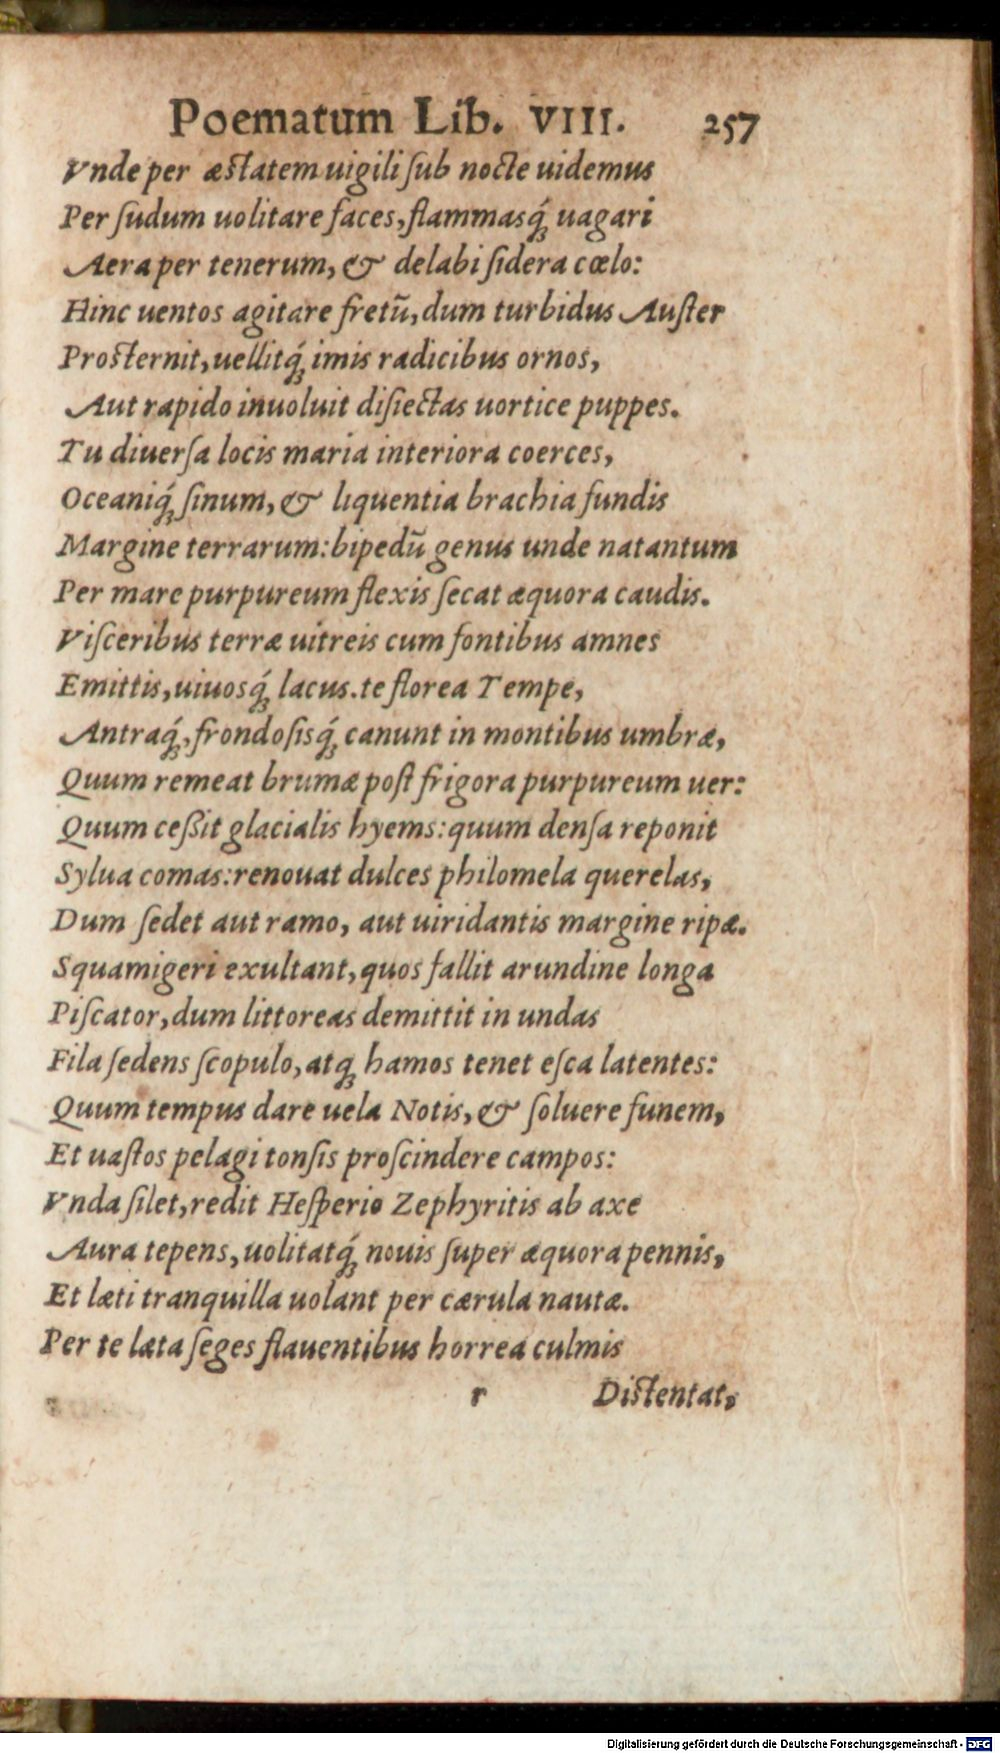 Poematum Lib. VIII. 257
Vnde per æstatem uigili sub nocte uidemus
Per sudum uolitare faces, flammasq́ꝫ uagari
Aera per tenerum, & delabi sidera cœlo:
Hinc uentos agitare fretũ, dum turbidus Auster
Prosternit, uellitq́ꝫ imis radicibus ornos,
Aut rapido inuoluit disiectas uortice puppes.
Tu diuersa locis maria interiora coerces,
Oceaniq́ꝫ sinum, & liquentia brachia fundis
Margine terrarum: bipedũ genus unde natantum
Per mare purpureum flexis secat æquora caudis.
Visceribus terræ uitreis cum fontibus amnes
Emittis, uiuosq́ꝫ lacus. te florea Tempe,
Antraq́ꝫ, frondosisq́ꝫ canunt in montibus umbræ,
Quum remeat brumæ post frigora purpureum uer:
Quum ceßit glacialis hyems: quum densa reponit
Sylua comas: renouat dulces philomela querelas,
Dum sedet aut ramo, aut uiridantis margine ripæ.
Squamigeri exultant, quos fallit arundine longa
Piscator, dum littoreas demittit in undas
Fila sedens scopulo, atqꝫ hamos tenet esca latentes:
Quum tempus dare uela Notis, & soluere funem,
Et uastos pelagi tonsis proscindere campos:
Vnda silet, redit Hesperio Zephyritis ab axe
Aura tepens, uolitatq́ꝫ nouis super æquora pennis,
Et læti tranquilla uolant per cærula nautæ.
Per te læta seges flauentibus horrea culmis
r Distentat,
Digitalisierung gefördert durch die Deutsche Forschungsgemeinschaft - DFG